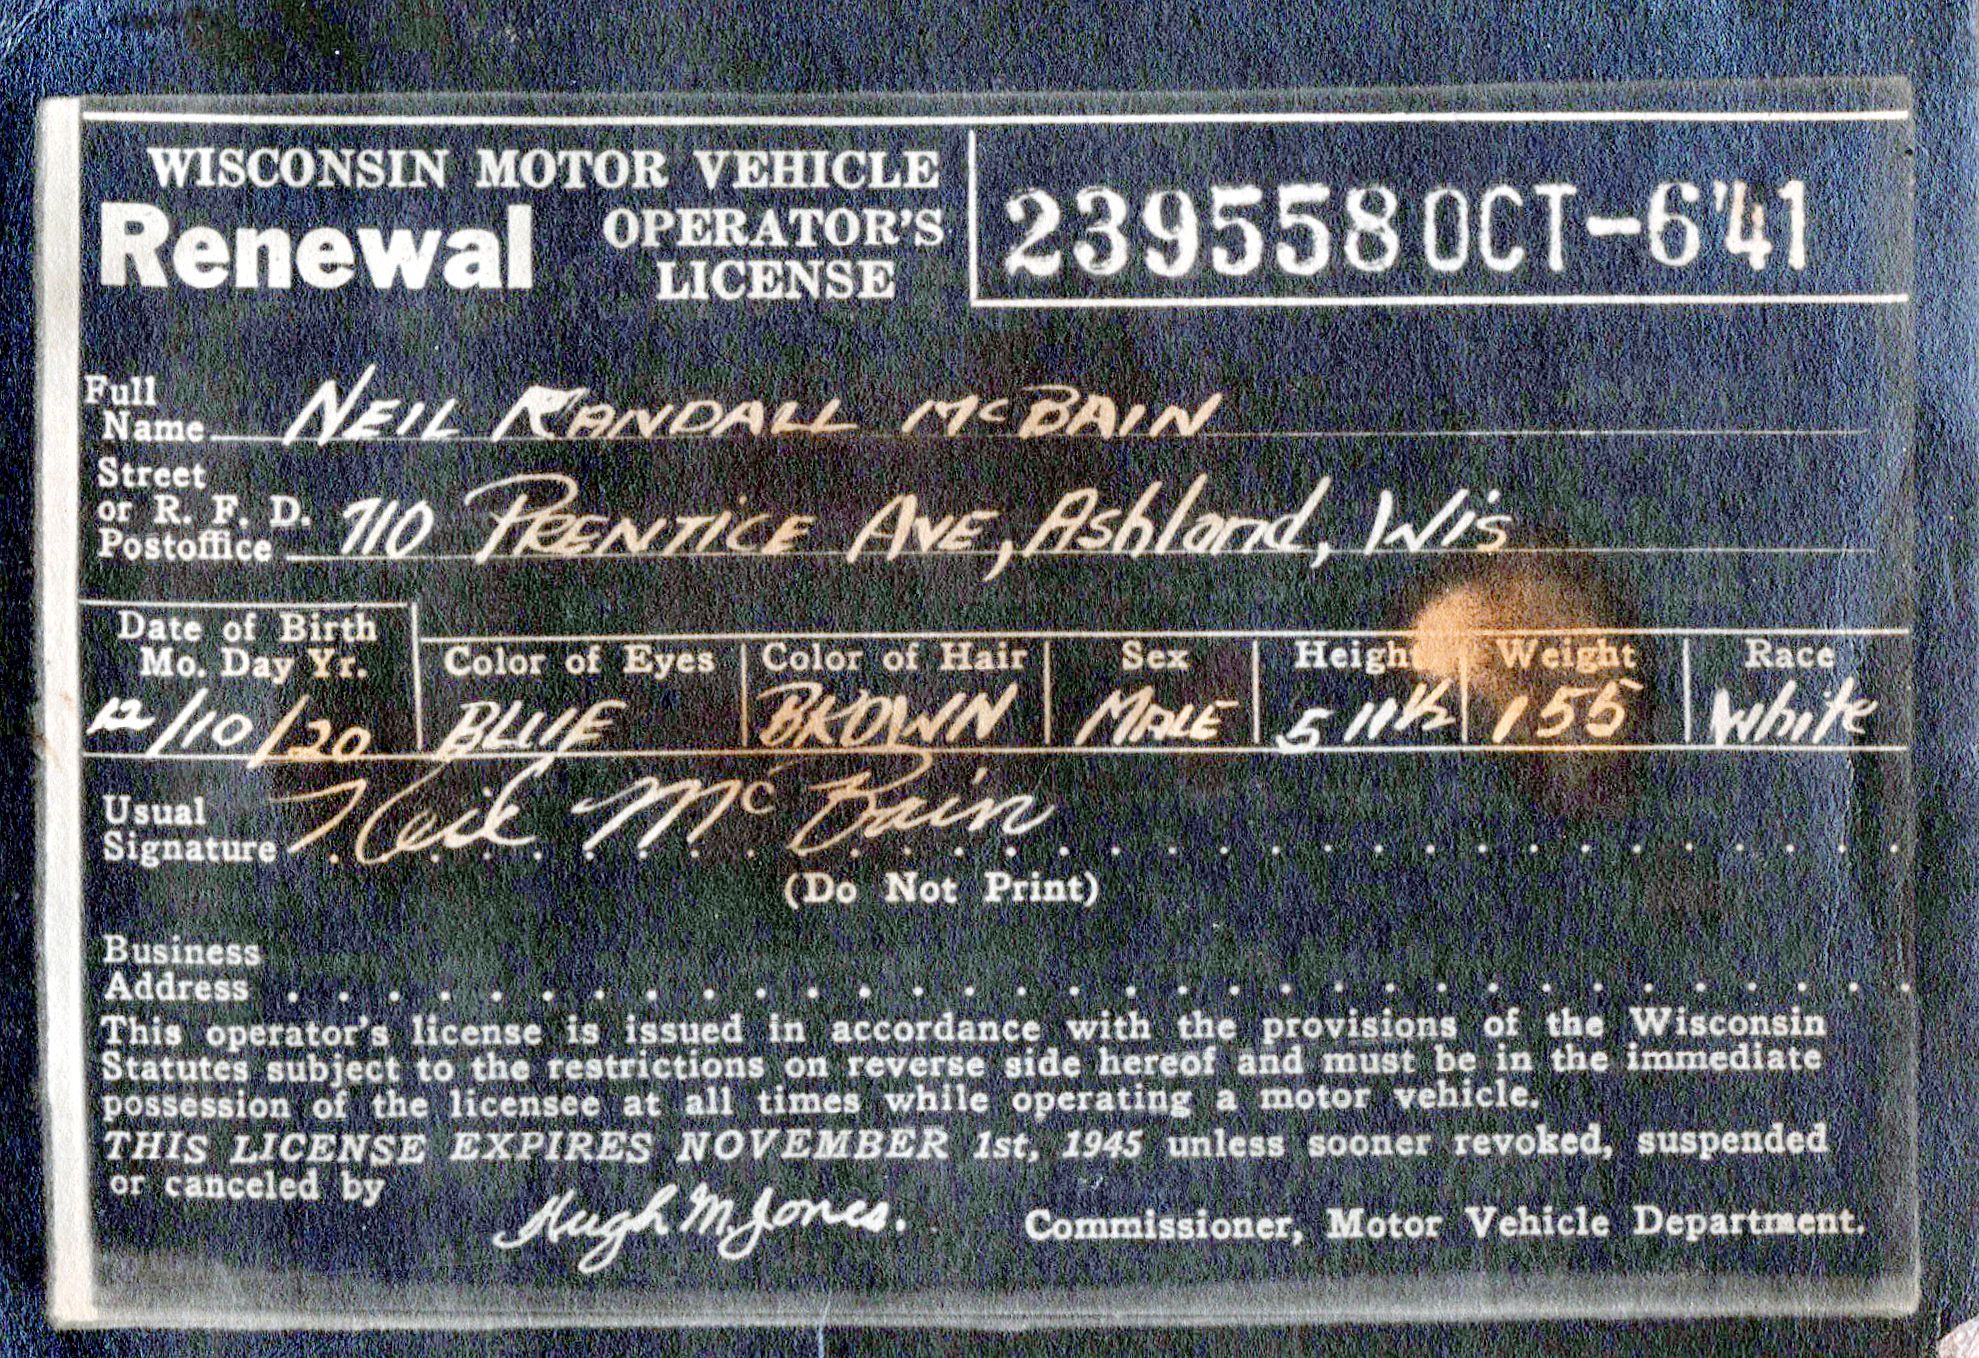 WISCONSIN MOTOR VEHICLE
Renewal OPERATOR'S LICENSE
239558 OCT-6'41
Full Name NEIL RANDALL McBAIN
Street or R. F. D. Postoffice 710 PRENTICE AVE, Ashland, Wis
Date of Birth Mo. Day Yr. Color of Eyes Color of Hair Sex Height Weight Race
12/10/20 BLUE BROWN MALE 5 11½ 155 White
Usual Signature Neil McBain
(Do Not Print)
Business Address
This operator's license is issued in accordance with the provisions of the Wisconsin
Statutes subject to the restrictions on reverse side hereof and must be in the immediate
possession of the licensee at all times while operating a motor vehicle.
THIS LICENSE EXPIRES NOVEMBER 1st, 1945 unless sooner revoked, suspended
or canceled by
Hugh M Jones. Commissioner, Motor Vehicle Department.